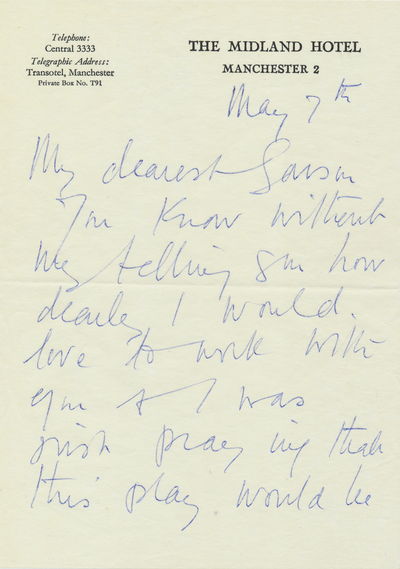 Telephone:
Central 3333
Telegraphic Address:
Transotel, Manchester
Private Box No. T91
THE MIDLAND HOTEL
MANCHESTER 2
May 7th
My dearest Garson
You know without
my telling you how
dearly I would.
love to work with
you & I was
just praying that
this play would be